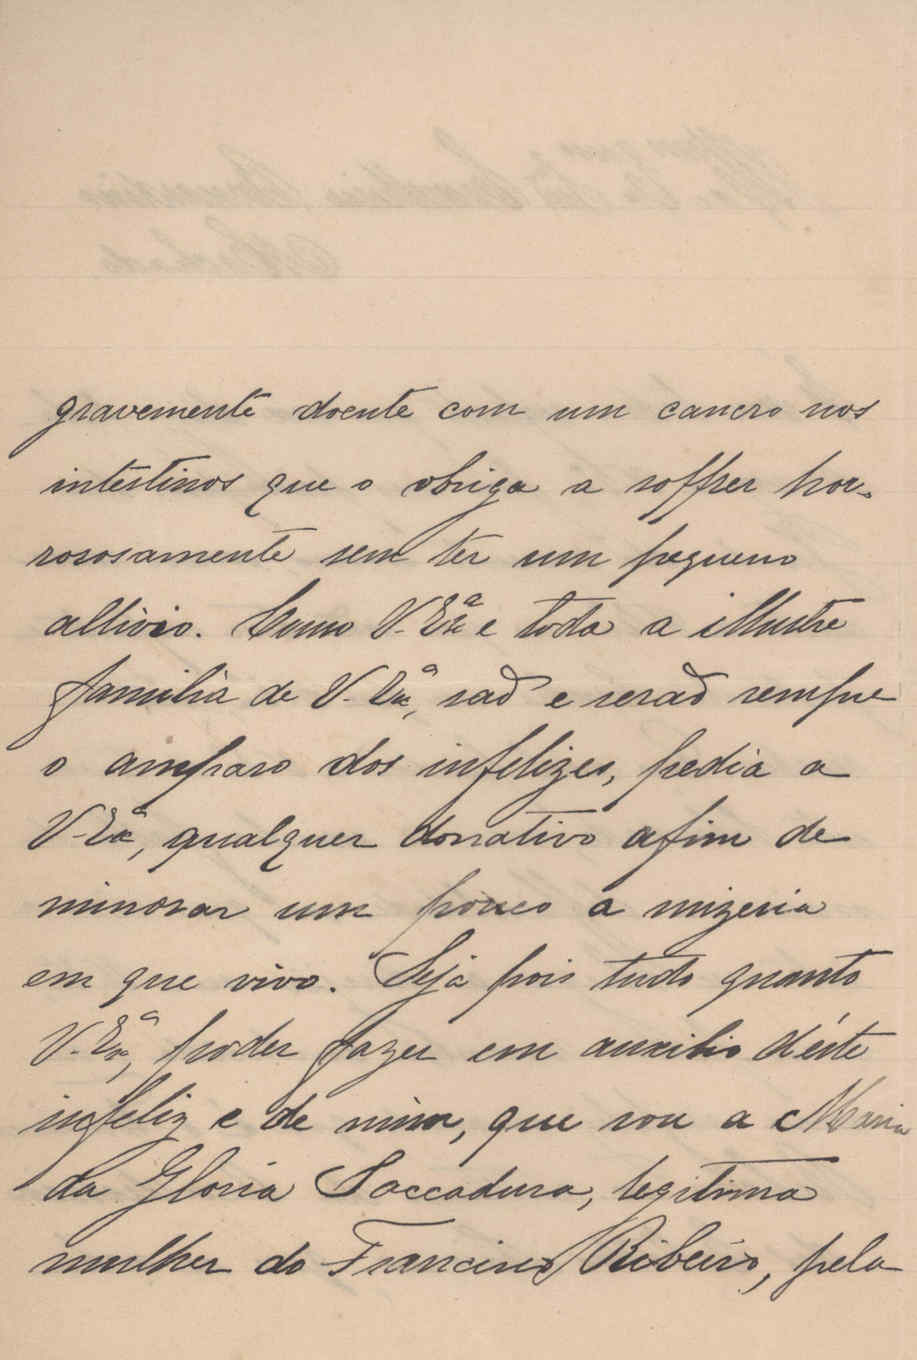 gravemente doente com um cancro nos
intestinos que o obriga a soffrer hor-
rorosamente sem ter um pequeno
allivio. Como V. Exª e toda a illustre
familia de V. Exª, saõ e seraõ sempre
o amparo dos infelizes, pedia a
V. Exª, qualquer donativo afim de
minorar um pouco a mizeria
em que vivo. Seja pois tudo quanto
V. Exª, poder fazer em auxilio d'éste
infeliz e de mim, que sou a Maria
da Gloria Saccadura, legitima
mulher do Francisco Ribeiro, pela